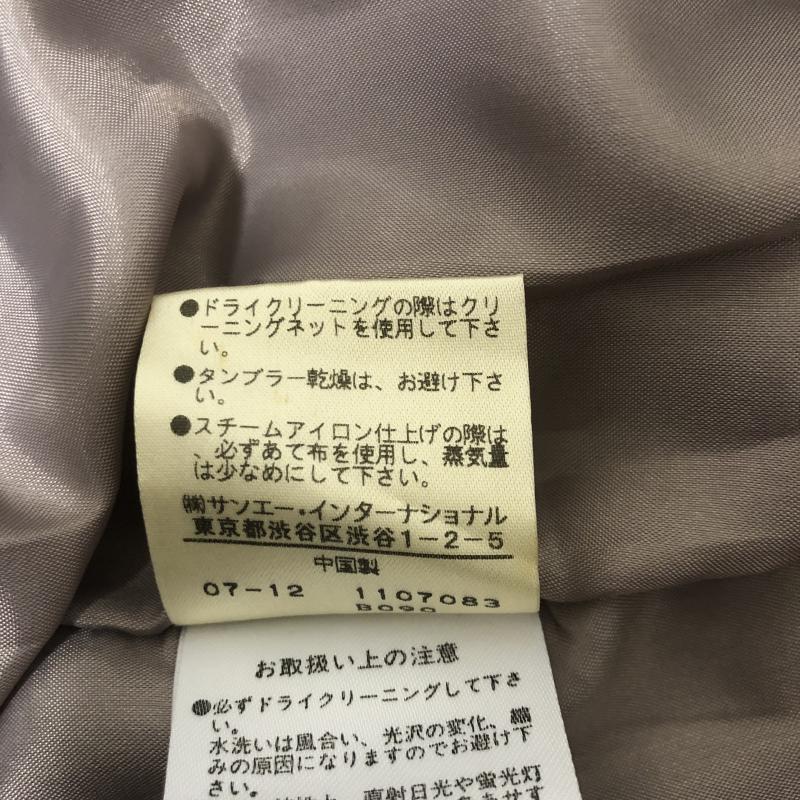 ●ドライクリーニングの際はクリ
ーニングネットを使用して下さ
い。
●タンブラー乾燥は、お避け下さ
い。
●スチームアイロン仕上げの際は
、必ずあて布を使用し、蒸気量
は少なめにして下さい。
㈱サンエー・インターナショナル
東京都渋谷区渋谷1-2-5
中国製
07-12 1107083
B090
お取扱い上の注意
●必ずドライクリーニングして下さ
い。
水洗いは風合い、光沢の変化、縮
みの原因になりますのでお避け下
さい。
直射日光や蛍光灯